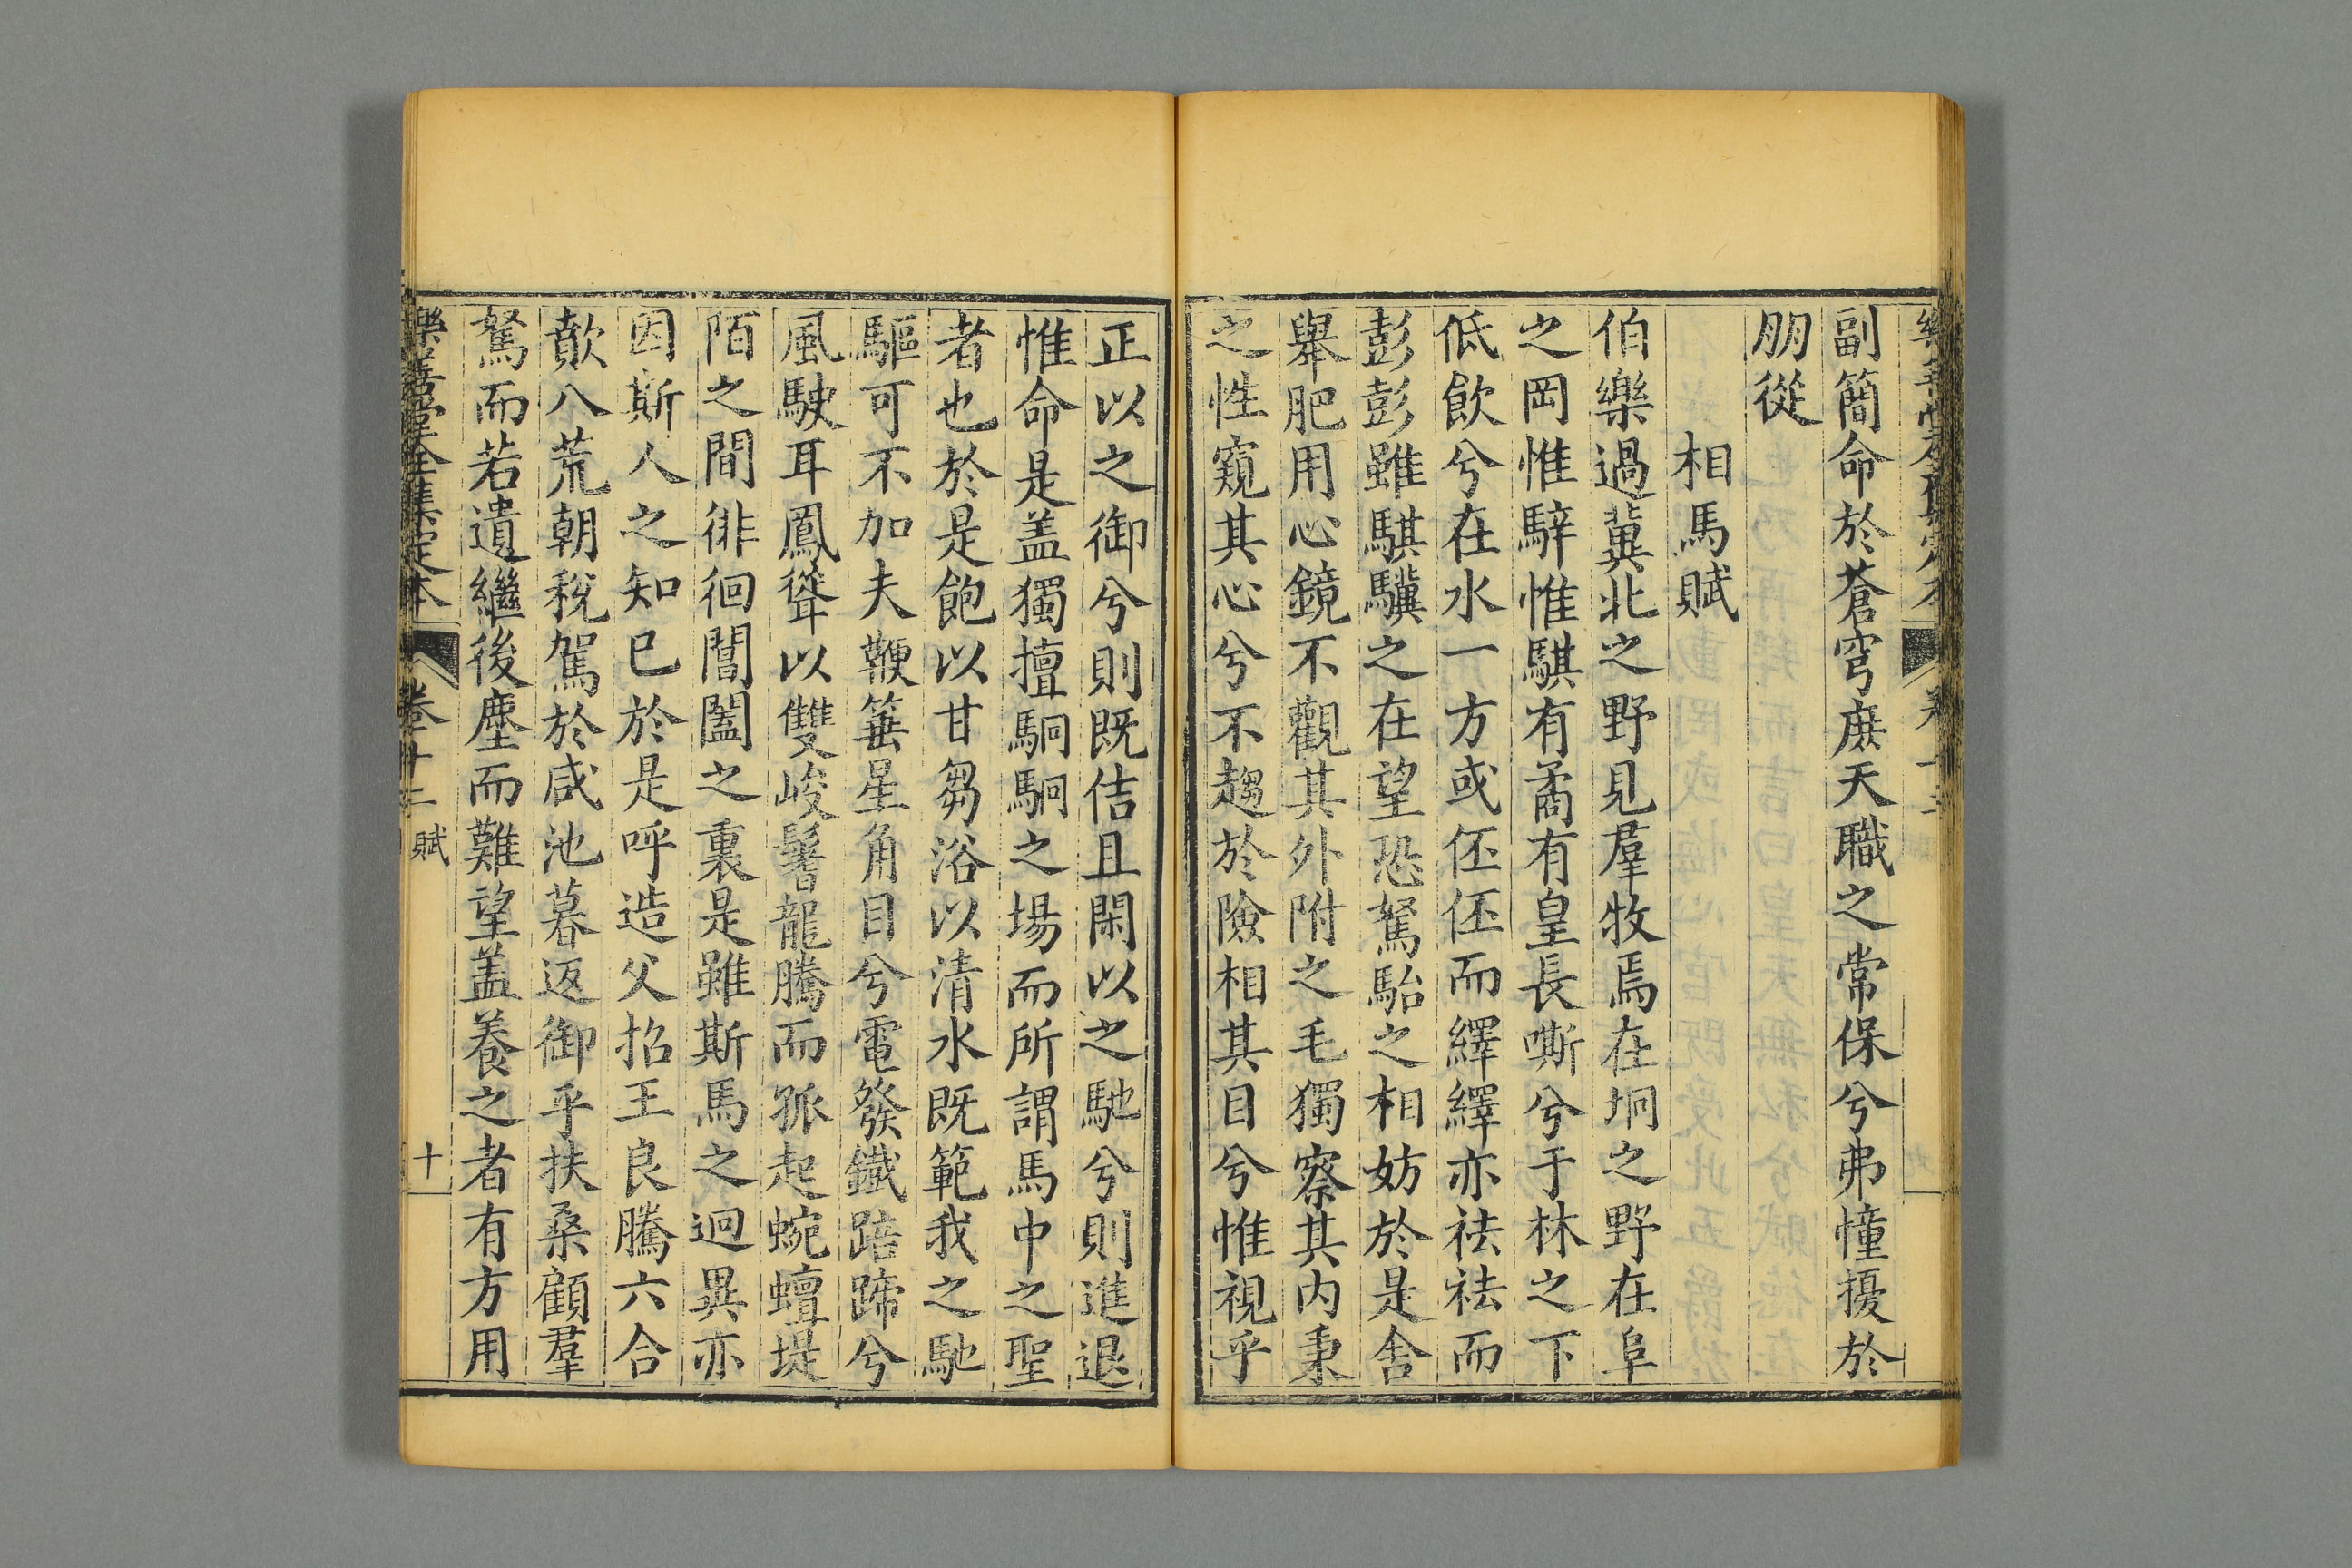 副簡命於蒼穹庶天職之常保兮弗憧擾於
朋從
相馬賦
伯樂過冀北之野見羣牧焉在坰之野在阜
之岡惟騂惟騏有驈有皇長嘶兮于林之下
低飲兮在水一方或伾伾而繹繹亦祛祛而
彭彭雖騏驥之在望恐駑駘之相妨於是舍
舉肥用心鏡不觀其外附之毛獨察其内秉
之性窺其心兮不趨於險相其目兮惟視乎
正以之御兮則既佶且閑以之馳兮則進退
惟命是盖獨擅駉駉之場而所謂馬中之聖
者也於是飽以甘芻浴以清水既範我之馳
驅可不加夫鞭箠星角目兮電發鐵踣蹄兮
風駛耳鳳聳以雙峻鬐龍騰而孤起蜿蟺堤
陌之間徘徊閶闔之裏是雖斯馬之迥異亦
因斯人之知已於是呼造父招王良騰六合
歕八荒朝稅駕於咸池暮返御乎扶桑顧羣
駑而若遺繼後塵而難望盖養之者有方用
樂善堂全集定本 卷十二 賦 十